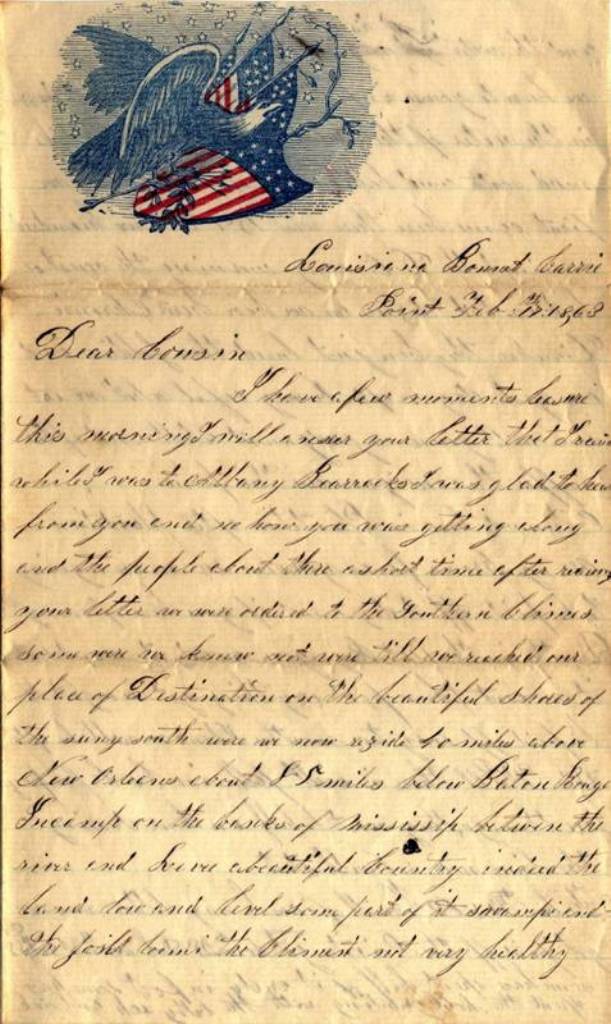 Louisiana Bonnet Carrie
Point Feb 17 1863
Dear Cousin
I have a few moments leasure
this morning I will answer your letter that I
while I was to Albany Bearrecks I was glad to hear
from you and no how you was getting along
and the people about there a short time after
your letter we were ordered to the Southern Climes
some were we knew not were till we reached our
place of Destination on the beautiful shores of
the suny south were we now reside 40 miles above
New Orleans about 85 miles below Baton Rouge
Incamp on the banks of Mississip between the
river and Levee a beautiful Country indeed the
land low and level some part of it swampe and
the soil loomi the Climent not very healthy